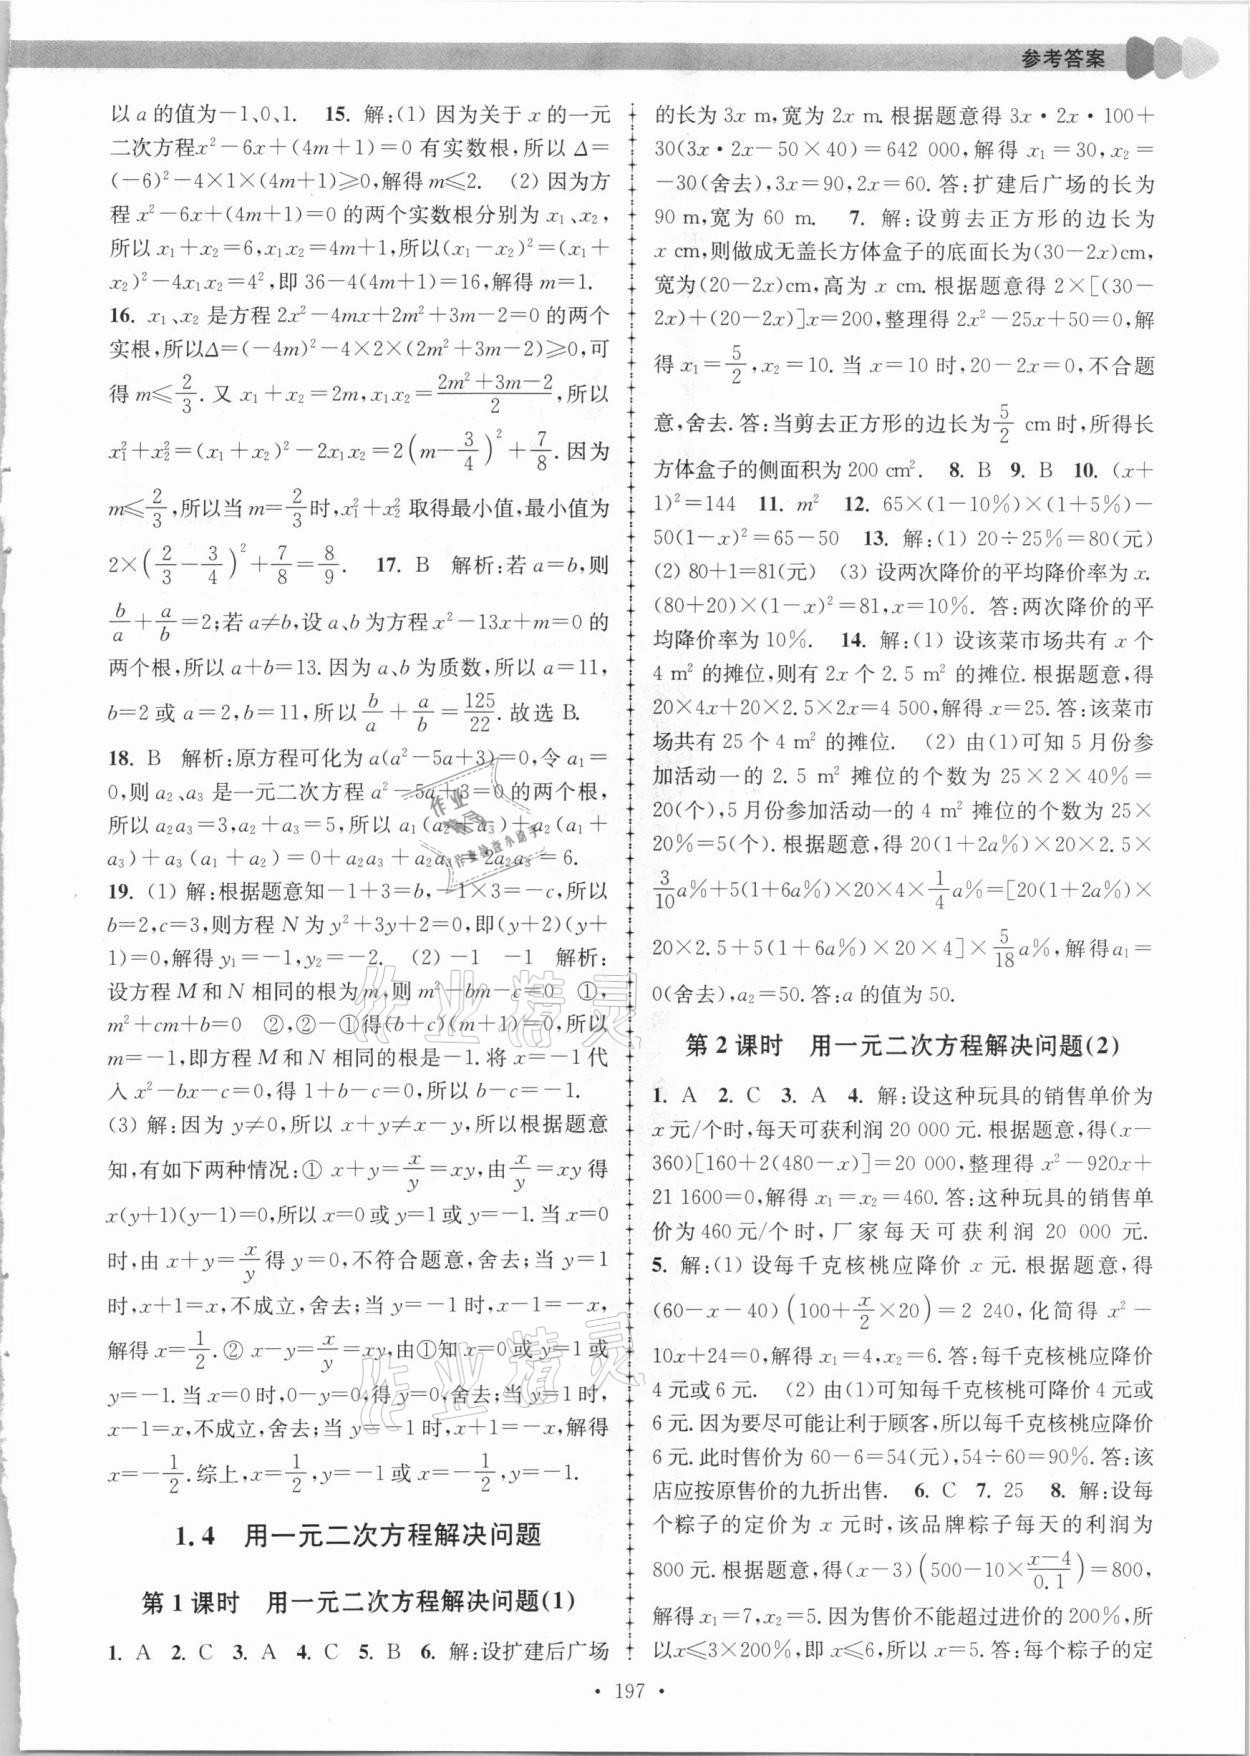 参考答案
以 a 的值为-1、0、1.　15. 解:(1) 因为关于 x 的一元
二次方程x²-6x+(4m+1)=0 有实数根,所以 Δ=
(-6)²-4×1×(4m+1)≥0,解得 m≤2.　(2) 因为方
程 x²-6x+(4m+1)=0 的两个实数根分别为 x₁、x₂,
所以 x₁+x₂=6,x₁x₂=4m+1,所以(x₁-x₂)²=(x₁+
x₂)²-4x₁x₂=4²,即 36-4(4m+1)=16,解得 m=1.
16. x₁、x₂ 是方程 2x²-4mx+2m²+3m-2=0 的两个
实根,所以Δ=(-4m)²-4×2×(2m²+3m-2)≥0,可
得 m≤2/3.又 x₁+x₂=2m,x₁x₂=(2m²+3m-2)/2,所以
x₁²+x₂²=(x₁+x₂)²-2x₁x₂=2(m-3/4)²+7/8.因为
m≤2/3,所以当 m=2/3时,x₁²+x₂² 取得最小值,最小值为
2×(2/3-3/4)²+7/8=8/9.　17. B　解析:若 a=b,则
b/a+a/b=2;若 a≠b,设 a、b 为方程 x²-13x+m=0 的
两个根,所以 a+b=13.因为 a、b 为质数,所以 a=11,
b=2 或 a=2,b=11,所以 b/a+a/b=125/22.故选 B.
18. B　解析:原方程可化为 a(a²-5a+3)=0,令 a₁=
0,则 a₂、a₃ 是一元二次方程 a²-5a+3=0 的两个根,
所以 a₂a₃=3,a₂+a₃=5,所以 a₁(a₂+a₃)+a₂(a₁+
a₃)+a₃(a₁+a₂)=0+a₂a₃+a₂a₃=2a₂a₃=6.
19. (1) 解:根据题意知-1+3=b,-1×3=-c,所以
b=2,c=3,则方程 N 为 y²+3y+2=0,即(y+2)(y+
1)=0,解得 y₁=-1,y₂=-2.　(2) -1　-1　解析:
设方程 M 和 N 相同的根为 m,则 m²-bm-c=0　①,
m²+cm+b=0　②,②-①得(b+c)(m+1)=0,所以
m=-1,即方程 M 和 N 相同的根是-1.将 x=-1 代
入 x²-bx-c=0,得 1+b-c=0,所以 b-c=-1.
(3) 解:因为 y≠0,所以 x+y≠x-y,所以根据题意
知,有如下两种情况:① x+y=x/y=xy,由x/y=xy 得
x(y+1)(y-1)=0,所以 x=0 或 y=1 或 y=-1.当 x=0
时,由 x+y=x/y得 y=0,不符合题意,舍去;当 y=1
时,x+1=x,不成立,舍去;当 y=-1 时,x-1=-x,
解得 x=1/2.② x-y=x/y=xy,由①知 x=0 或 y=1 或
y=-1.当 x=0 时,0-y=0,得 y=0,舍去;当 y=1 时,
x-1=x,不成立,舍去;当 y=-1 时,x+1=-x,解得
x=-1/2.综上,x=1/2,y=-1 或 x=-1/2,y=-1.
1.4　用一元二次方程解决问题
第 1 课时　用一元二次方程解决问题(1)
1. A　2. C　3. A　4. C　5. B　6. 解:设扩建后广场
的长为 3x m,宽为 2x m.根据题意得 3x·2x·100+
30(3x·2x-50×40)=642 000,解得 x₁=30,x₂=
-30(舍去),3x=90,2x=60.答:扩建后广场的长为
90 m,宽为 60 m.　7. 解:设剪去正方形的边长为
x cm,则做成无盖长方体盒子的底面长为(30-2x)cm,
宽为(20-2x)cm,高为 x cm.根据题意得 2×[(30-
2x)+(20-2x)]x=200,整理得 2x²-25x+50=0,解
得 x₁=5/2,x₂=10.当 x=10 时,20-2x=0,不合题
意,舍去.答:当剪去正方形的边长为5/2 cm 时,所得长
方体盒子的侧面积为 200 cm².　8. B　9. B　10. (x+
1)²=144　11. m²　12. 65×(1-10%)×(1+5%)-
50(1-x)²=65-50　13. 解:(1) 20÷25%=80(元)
(2) 80+1=81(元)　(3) 设两次降价的平均降价率为 x.
(80+20)×(1-x)²=81,x=10%.答:两次降价的平
均降价率为 10%.　14. 解:(1) 设该菜市场共有 x 个
4 m² 的摊位,则有 2x 个 2.5 m² 的摊位.根据题意,得
20×4x+20×2.5×2x=4 500,解得 x=25.答:该菜市
场共有 25 个 4 m² 的摊位.　(2) 由(1)可知 5 月份参
加活动一的 2.5 m² 摊位的个数为 25×2×40%=
20(个),5 月份参加活动一的 4 m² 摊位的个数为 25×
20%=5(个).根据题意,得 20(1+2a%)×20×2.5×
3/10a%+5(1+6a%)×20×4×1/4a%=[20(1+2a%)×
20×2.5+5(1+6a%)×20×4]×5/18a%,解得 a₁=
0(舍去),a₂=50.答:a 的值为 50.
第 2 课时　用一元二次方程解决问题(2)
1. A　2. C　3. A　4. 解:设这种玩具的销售单价为
x 元/个时,每天可获利润 20 000 元.根据题意,得(x-
360)[160+2(480-x)]=20 000,整理得 x²-920x+
21 1600=0,解得 x₁=x₂=460.答:这种玩具的销售单
价为 460 元/个时,厂家每天可获利润 20 000 元.
5. 解:(1) 设每千克核桃应降价 x 元.根据题意,得
(60-x-40)(100+x/2×20)=2 240,化简得 x²-
10x+24=0,解得 x₁=4,x₂=6.答:每千克核桃应降价
4 元或 6 元.　(2) 由(1)可知每千克核桃可降价 4 元或
6 元.因为要尽可能让利于顾客,所以每千克核桃应降价
6 元.此时售价为 60-6=54(元),54÷60=90%.答:该
店应按原售价的九折出售.　6. C　7. 25　8. 解:设每
个粽子的定价为 x 元时,该品牌粽子每天的利润为
800 元.根据题意,得(x-3)(500-10×(x-4)/0.1)=800,
解得 x₁=7,x₂=5.因为售价不能超过进价的 200%,所
以x≤3×200%,即 x≤6,所以 x=5.答:每个粽子的定
· 197 ·
作业精灵
作业精灵
作业精灵
作业检查小助手